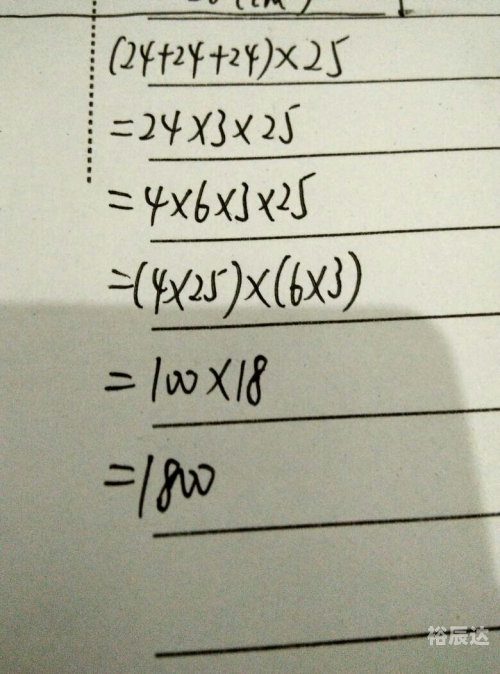 (24+24+24)×25
=24×3×25
=4×6×3×25
=(4×25)×(6×3)
=100×18
=1800
裕辰达